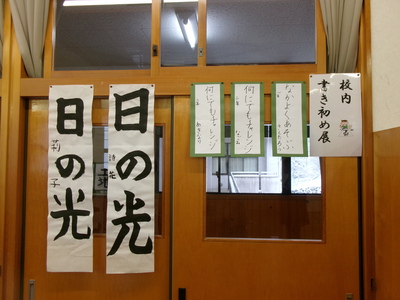 校内
書き初め展
なかよくあそぶ
何にでもチャレンジ
何にでもチャレンジ
日の光
日の光
莉子